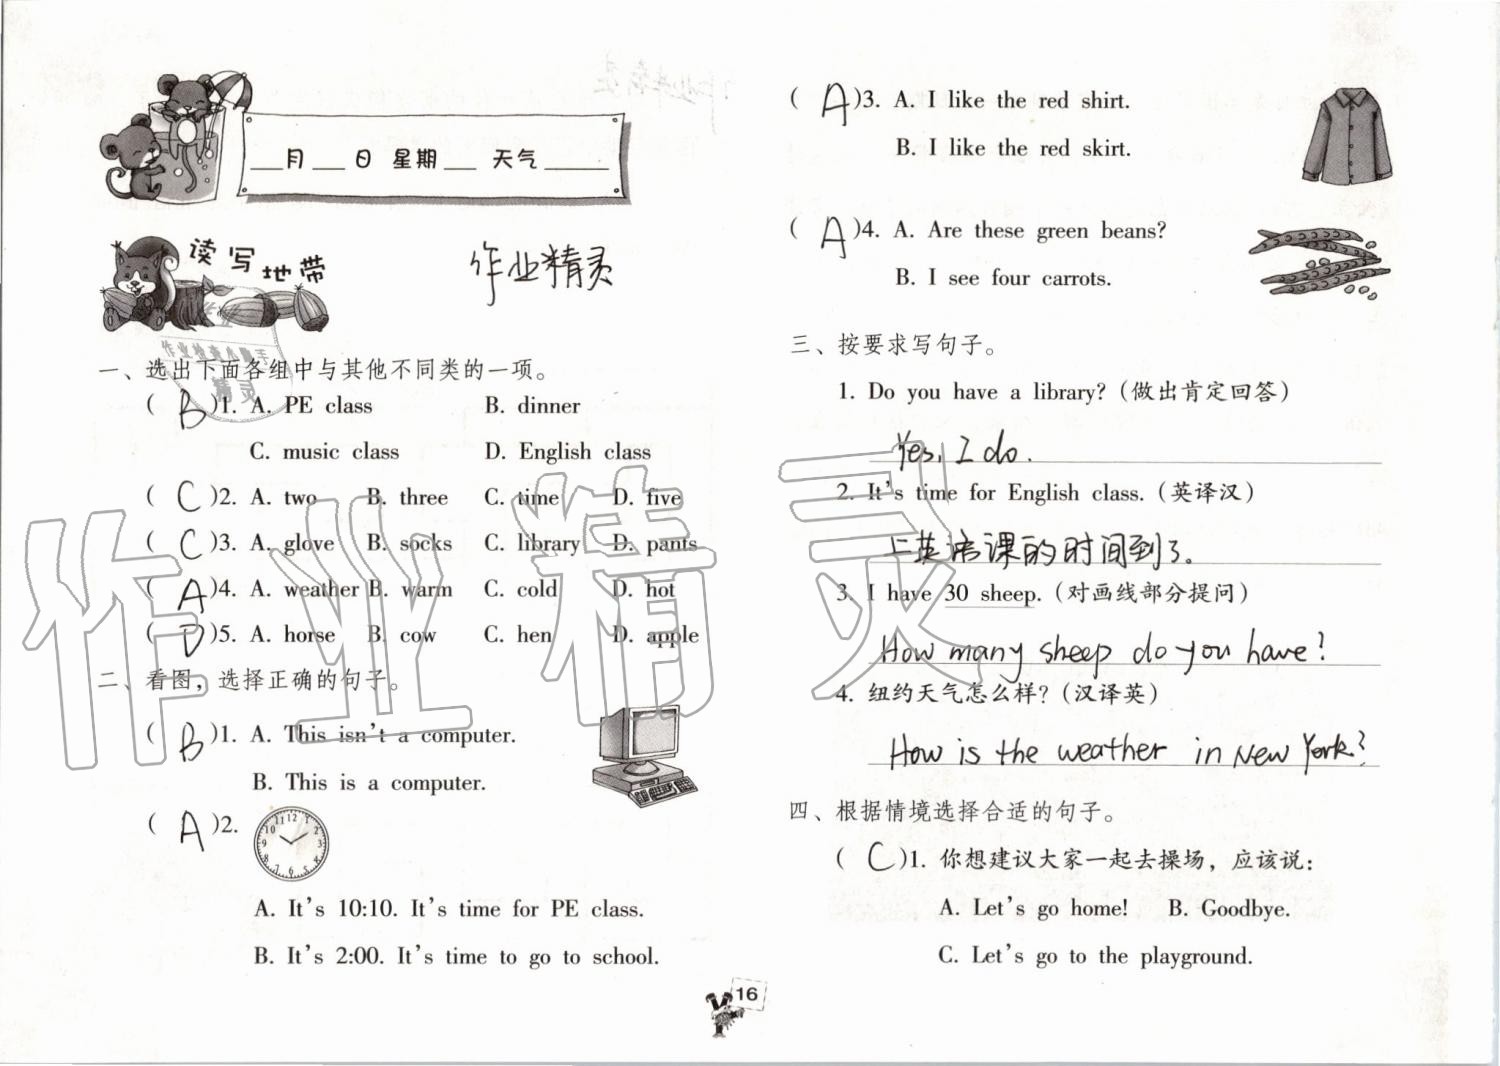 ___月___日 星期___ 天气______
读写地带
作业精灵
作业检查小助手
精灵
一、选出下面各组中与其他不同类的一项。
( B )1. A. PE class B. dinner
C. music class D. English class
( C )2. A. two B. three C. time D. five
( C )3. A. glove B. socks C. library D. pants
( A )4. A. weather B. warm C. cold D. hot
( D )5. A. horse B. cow C. hen D. apple
二、看图，选择正确的句子。
( B )1. A. This isn't a computer.
B. This is a computer.
( A )2.
A. It's 10:10. It's time for PE class.
B. It's 2:00. It's time to go to school.
( A )3. A. I like the red shirt.
B. I like the red skirt.
( A )4. A. Are these green beans?
B. I see four carrots.
三、按要求写句子。
1. Do you have a library?（做出肯定回答）
Yes, I do.
2. It's time for English class.（英译汉）
上英语课的时间到了。
3. I have 30 sheep.（对画线部分提问）
How many sheep do you have?
4. 纽约天气怎么样?（汉译英）
How is the weather in New York?
四、根据情境选择合适的句子。
( C )1. 你想建议大家一起去操场，应该说：
A. Let's go home! B. Goodbye.
C. Let's go to the playground.
16
作业精灵